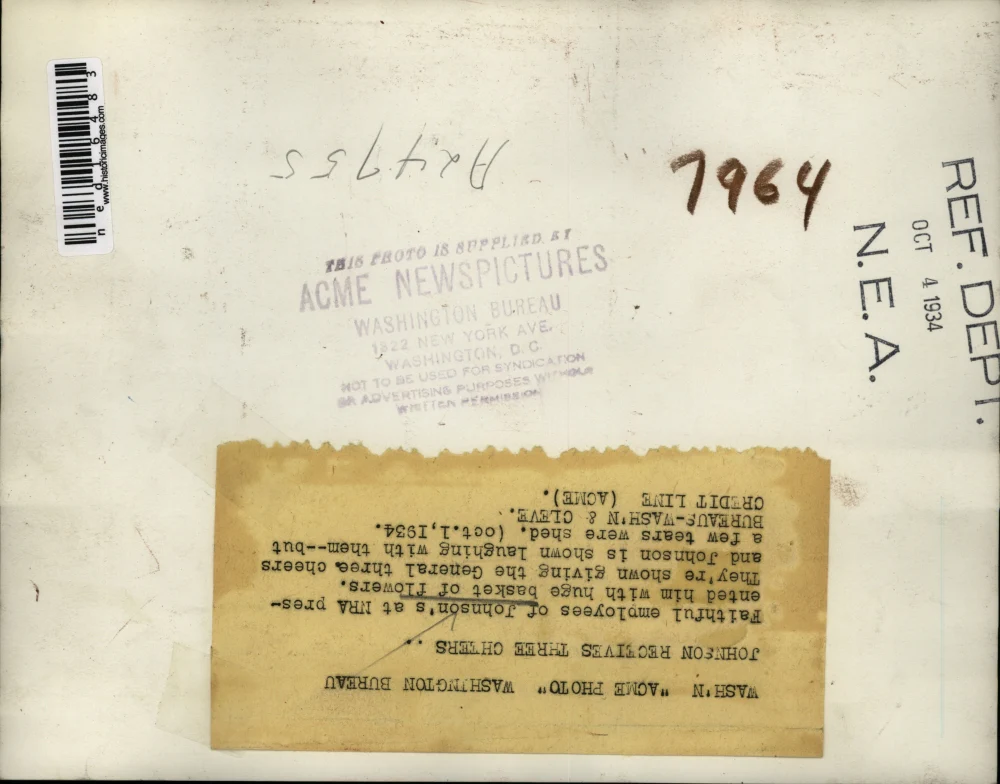 ned16483
www.historicimages.com
A24755
7964
THIS PHOTO IS SUPPLIED BY
ACME NEWSPICTURES
WASHINGTON BUREAU
1322 NEW YORK AVE.
WASHINGTON, D. C.
NOT TO BE USED FOR SYNDICATION
OR ADVERTISING PURPOSES WITHOUT
WRITTEN PERMISSION
REF. DEPT.
OCT 4 1934
N.E.A.
WASH'N "ACME PHOTO" WASHINGTON BUREAU
JOHNSON RECEIVES THREE CHEERS ..
Faithful employees of Johnson's at NRA pres-
ented him with huge basket of flowers.
They're shown giving the General three cheers
and Johnson is shown laughing with them--but
a few tears were shed. (oct.1,1934.
BUREAUS-WASH'N & CLEVE.
CREDIT LINE (ACME).